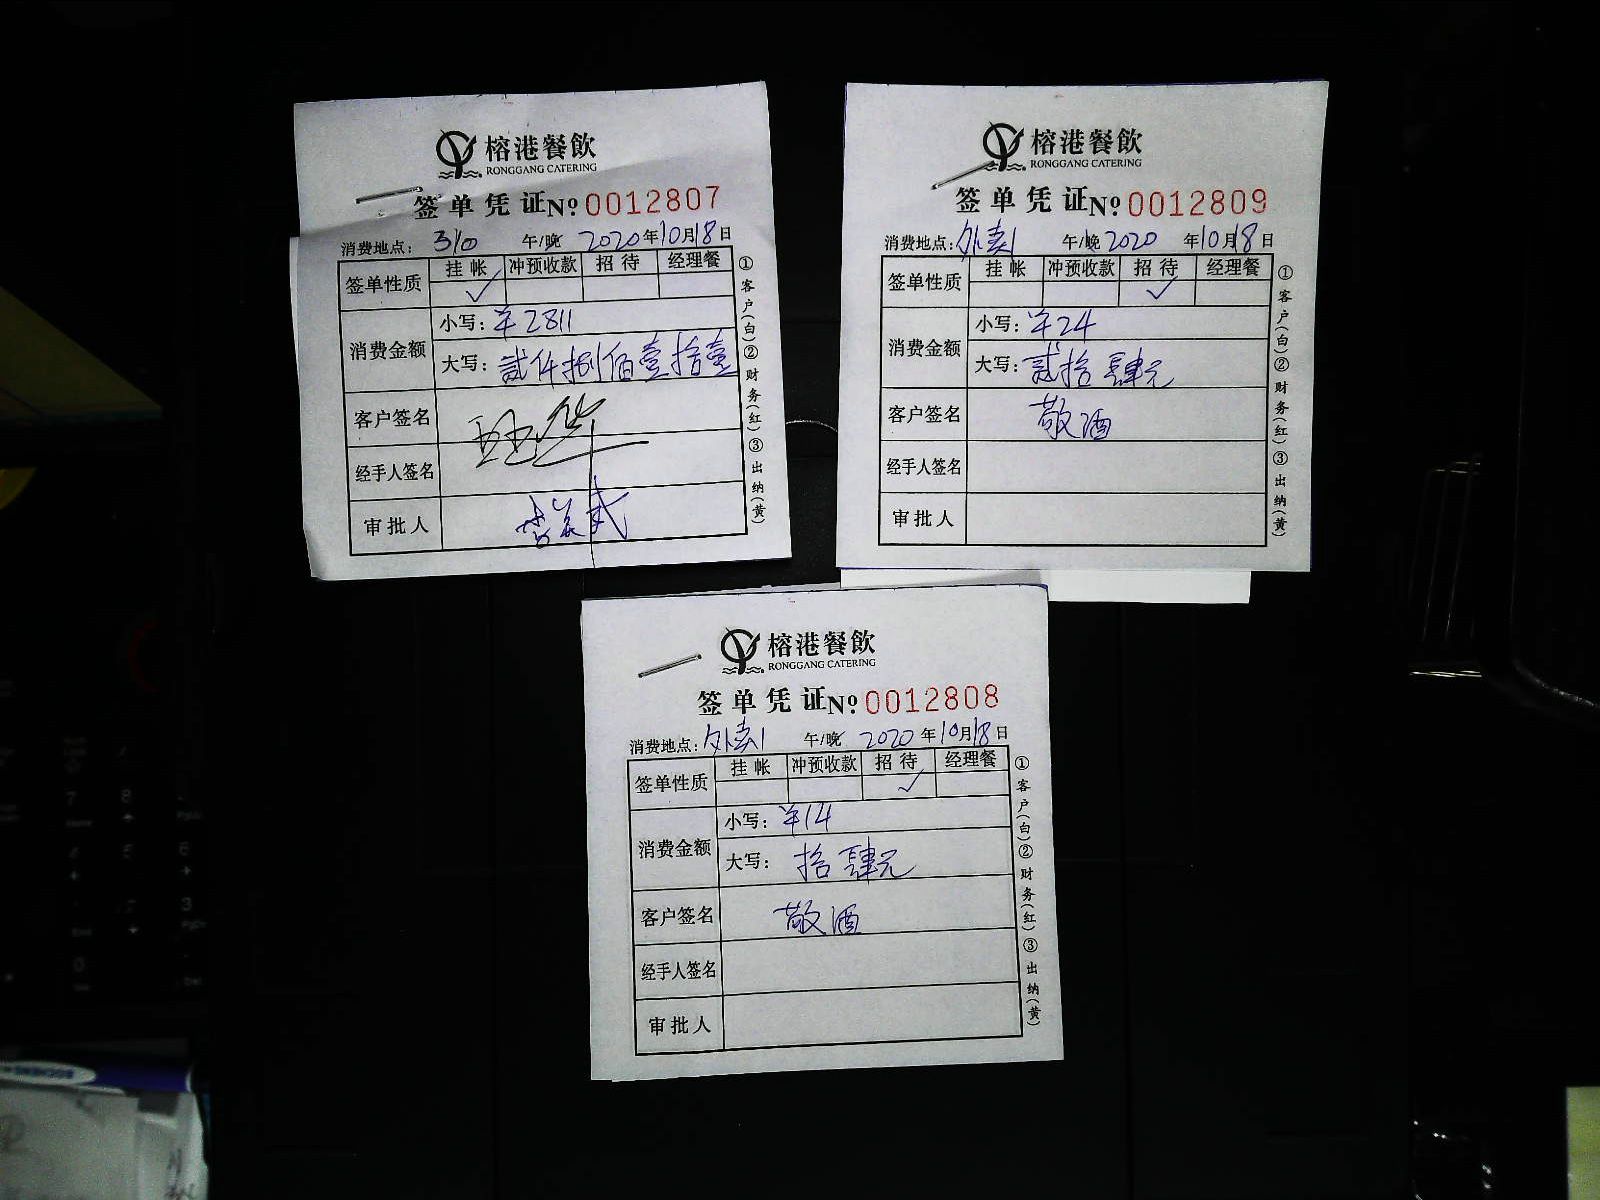 榕港餐飲
RONGGANG CATERING
签单凭证№ 0012807
消费地点: 310 午/晚 2020年10月18日
签单性质 挂帐 冲预收款 招待 经理餐
✓
消费金额
小写: ¥2811
大写: 贰仟捌佰壹拾壹
客户签名
经手人签名
审批人
①客户(白)②财务(红)③出纳(黄)
榕港餐飲
RONGGANG CATERING
签单凭证№ 0012809
消费地点: 外卖1 午/晚 2020 年10月18日
签单性质 挂帐 冲预收款 招待 经理餐
✓
消费金额
小写: ¥24
大写: 贰拾肆元
客户签名 敬酒
经手人签名
审批人
①客户(白)②财务(红)③出纳(黄)
榕港餐飲
RONGGANG CATERING
签单凭证№ 0012808
消费地点: 外卖1 午/晚 2020 年10月18日
签单性质 挂帐 冲预收款 招待 经理餐
✓
消费金额
小写: ¥14
大写: 拾肆元
客户签名 敬酒
经手人签名
审批人
①客户(白)②财务(红)③出纳(黄)